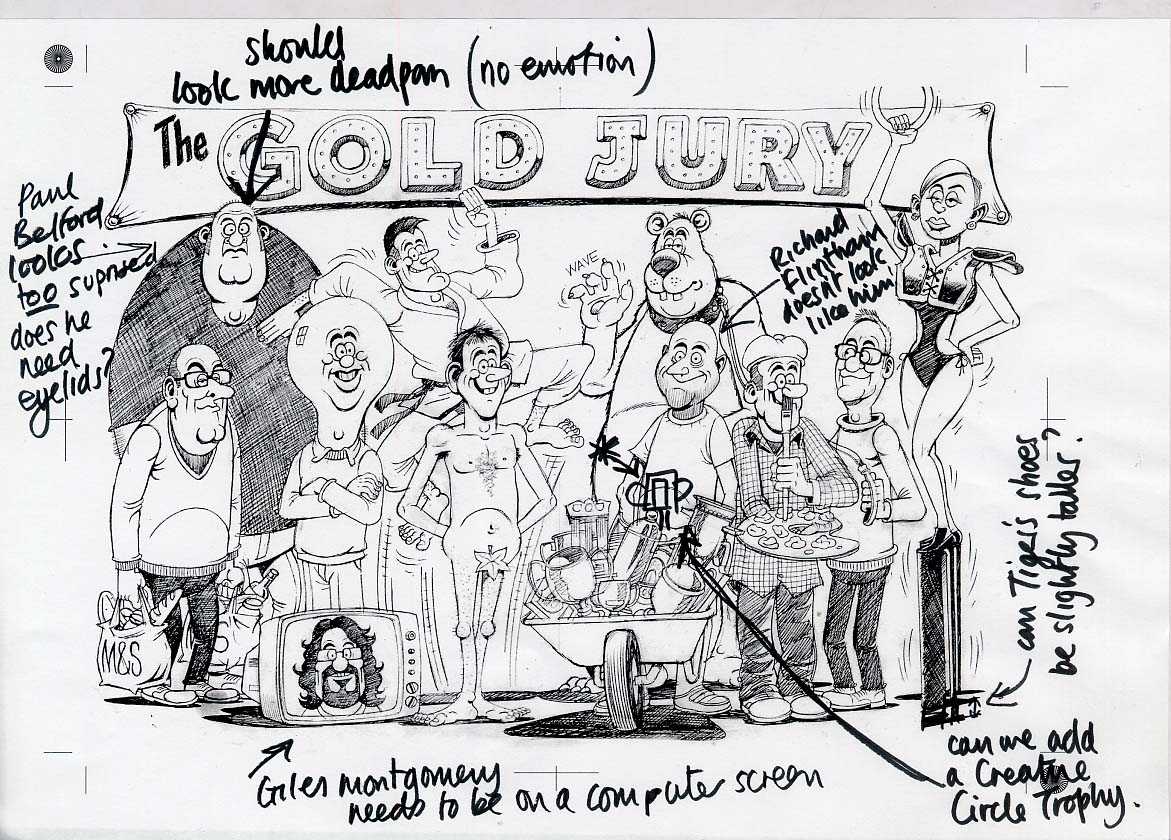 should
look more deadpan (no emotion)
The GOLD JURY
Paul
Belford
looks
too suprised
does he
need
eyelids?
WAVE
Richard
Flintham
doesn't look
like him
can Tiger's shoes
be slightly taller?
M&S
Giles montgomery
needs to be on a computer screen
can we add
a Creative
Circle Trophy.